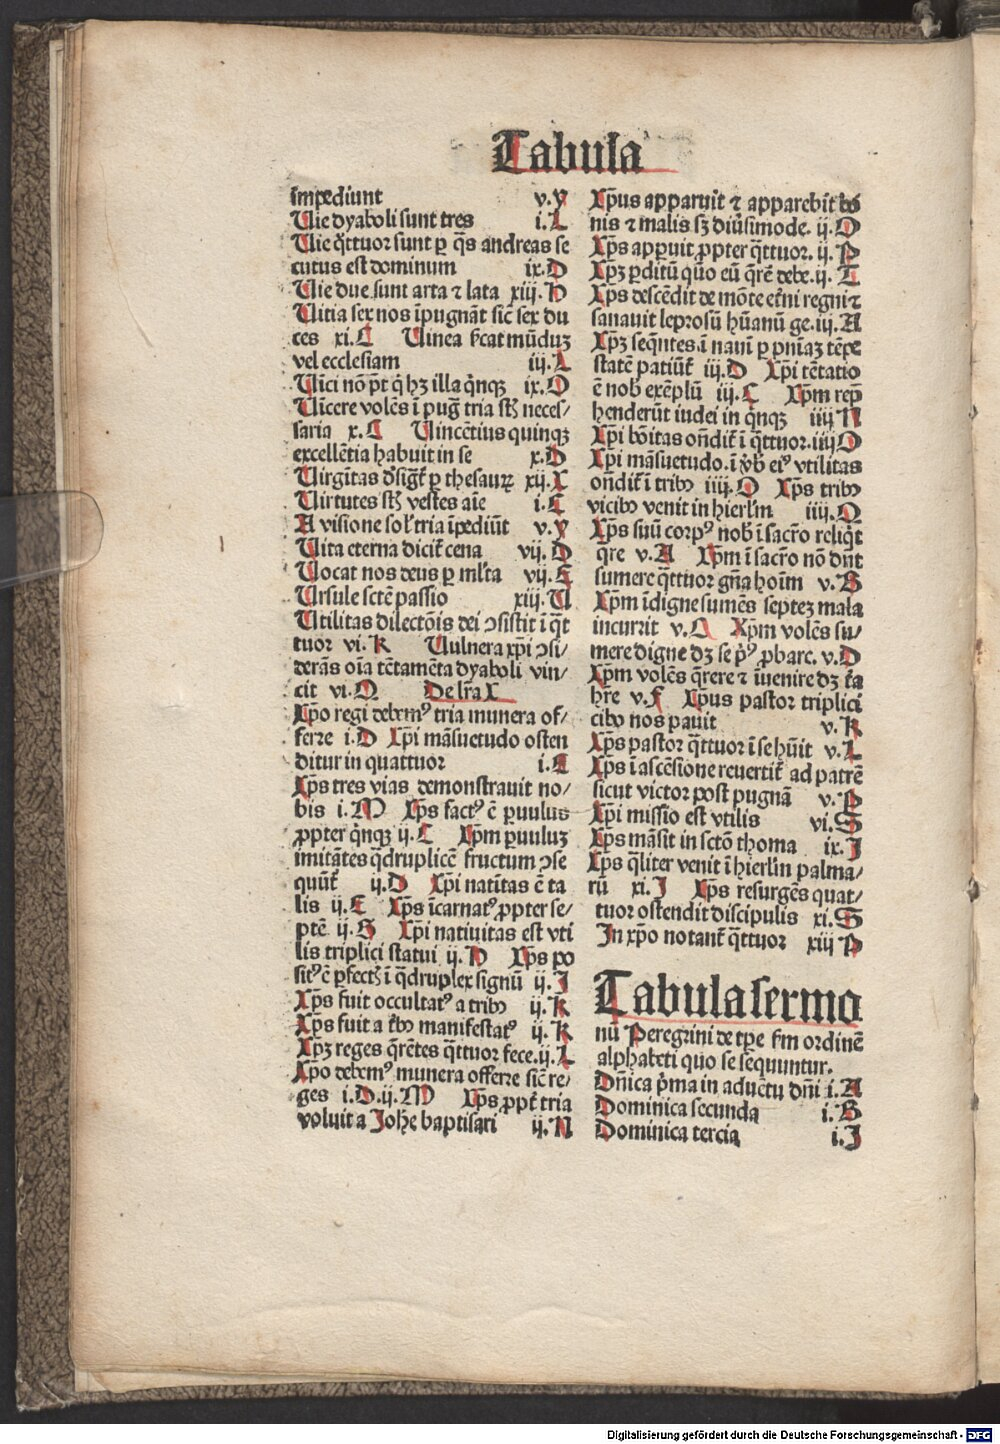 Tabula
impediunt v.Y
Uie dyaboli sunt tres i.L
Uie q̄ttuor sunt ꝑ q̄s andreas se
cutus est dominum ix.D
Uie due sunt arta ⁊ lata xiij.H
Uitia sex nos īpugnāt sic̄ sex du
ces xi.C Uinea ſcat mūduꝫ
vel ecclesiam iij.L
Uīci nō pt̄ q̇ hꝫ illa q̇nqꝫ ix.O
Uīcere volēs ī puḡ tria st̄ neces⸗
saria x.C Uincētius quinqꝫ
excellētia habuit in se x.D
Uirgītas ꝺ̄sigt̄ ꝑ thesauꝝ xij.X
Uirtutes st̄ vestes aīe i.C
A visione sol' tria īpediūt v.Y
Uita eterna dicit̄ cena vij.D
Uocat nos deus ꝑ ml'ta vij.E
Ursule sctē passio xiij.U
Utilitas dilectōis dei ↄsistit ī q̄t
tuor vi.K Uulnera xp̄i ↄsi⸗
derās oīa tētamēta dyaboli vin⸗
cit vi.Q De lr̄a X
Xp̄o regi debem⁹ tria munera of⸗
ferre i.D Xp̄i māsuetudo osten
ditur in quattuor i.E
Xp̄s tres vias demonstrauit no⸗
bis i.M Xp̄s fact⁹ ē ꝑuulus
ꝓpter q̇nqꝫ ij.C Xp̄m ꝑuuluꝫ
imitātes q̄druplicē fructum ↄse
quūt̄ ij.D Xp̄i natiītas ē ta
lis ij.E Xp̄s īcarnat⁹ ꝓpter se⸗
ptē ij.G Xp̄i natiuitas est vti
lis triplici statui ij.H Xp̄s po
sit⁹ ē ꝑfect̄ ī q̄druplex signū ij.I
Xp̄s fuit occultat⁹ a tribꝰ ij.K
Xp̄s fuit a t̄bꝰ manifestat⁹ ij.K
Xp̄ꝫ reges q̄rētes q̄ttuor fece. ij.L
Xp̄o debem⁹ munera offerre sic̄ re⸗
ges i.D. ij.M Xp̄s ꝓpt̄ tria
voluit a Joh̄e baptisari ij.N
Xp̄us apparuit ⁊ apparebit bo
nis ⁊ malis sꝫ diūsimode. ij.O
Xp̄s apꝑuit ꝓpter q̄ttuor. ij.P
Xp̄ꝫ ꝑditū quo eū q̄rē debe. ij.T
Xp̄s descēdit de mōte et̄ni regni ⁊
sanauit leprosū hūanū ge. iij.A
Xp̄ꝫ seq̄ntes ī nauī ꝑ pn̄iaꝫ tēpe
statē patiūt̄ iij.D Xp̄i tētatio
ē nob̄ exēplū iij.C Xp̄m rep̄
henderūt iudei in q̇nqꝫ iiij N
Xp̄i bōitas on̄dit̄ ī q̄ttuor. iiij O
Xp̄i māsuetudo. ī ꝟb̄ ei⁹ vtilitas
on̄dit̄ ī tribꝰ iiij.O Xp̄s tribꝰ
vicibꝰ venit in hierl'm iiij.Q
Xp̄s suū corp⁹ nob̄ ī sacr̄o reliq̇t
q̄re v.A Xp̄m ī sacr̄o nō dn̄t
sumere q̄ttuor gn̄a hoīm v.B
Xp̄m īdigne sumēs septeꝫ mala
incurrit v.C Xp̄m volēs su⸗
mere digne dꝫ se p̄⁹ ꝓbare. v.D
Xp̄m volēs q̄rere ⁊ īuenire dꝫ t̄a
hr̄e v.F Xp̄us pastor triplici
cibo nos pauit v.K
Xp̄s pastor q̄ttuor ī se hūit v.L
Xp̄s ī ascēsione reuertit̄ ad patrē
sicut victor post pugnā v.P
Xp̄i missio est vtilis vi.S
Xp̄s māsit in sctō thoma ix.I
Xp̄s q̄liter venit ī hierl'm palma⸗
rū xi.I Xp̄s resurgēs quat⸗
tuor ostendit discipulis xi.S
In xp̄o notant̄ q̄ttuor xiij P
Tabula sermo
nū Peregrini de tp̄e ẜm ordinē
alphabeti quo se sequuntur.
Dn̄ica p̄ma in aduētu dn̄i i.A
Dominica secunda i.B
Dominica tercia i.I
Digitalisierung gefördert durch die Deutsche Forschungsgemeinschaft - DFG